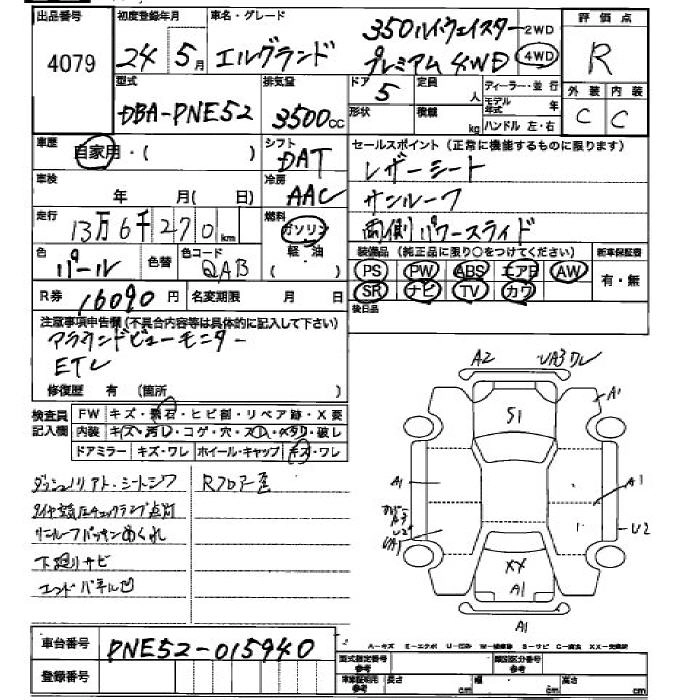 出品番号 4079
初度登録年月 24年 5月
車名・グレード エルグランド 350ハイウェイスター プレミアム 4WD
2WD 4WD
評価点 R
外装 内装
C C
型式 DBA-PNE52
排気量 3500cc
ドア 5
定員 人
形状
積載 kg
ディーラー・並行
モデル年式 年
ハンドル 左・右
車歴 自家用・( )
シフト DAT
セールスポイント(正常に機能するものに限ります)
レザーシート
サンルーフ
両側パワースライド
車検 年 月( )
冷房 AAC
走行 13万6千270km
燃料 ガソリン 軽・油
色 パール
色替
色コード QAB
装備品(純正品に限り○をつけてください)
新車保証書
PS PW ABS エアB AW
有・無
SR ナビ TV カワ
R券 16090円
名変期限 月 日
後日品
注意事項申告欄(不具合内容等は具体的に記入して下さい)
アラウンドビューモニター
ETC
修復歴 有 (箇所 )
検査員記入欄
FW キズ・飛石・ヒビ割・リペア跡・X要
内装 キズ・汚レ・コゲ・穴・スレ・ヘタリ・破レ
ドアミラー キズ・ワレ ホイール・キャップ キズ・ワレ
ダッシュ
シートシワ
Rフロアー歪
タイヤ空気圧チェックランプ点灯
サンルーフパッキンめくれ
下廻りサビ
エンドパネル凹
A2
UA3ワレ
A1
S1
A1
A1
U2
UA1
U2
XX
A1
A1
A－キズ E－エクボ U－凹み W－補修跡 S－サビ C－腐食 XX－交換済
車台番号 PNE52-015940
登録番号
型式指定番号 参考
類別区分番号 参考
車検証記載 参考
長さ cm
幅 cm
高さ cm